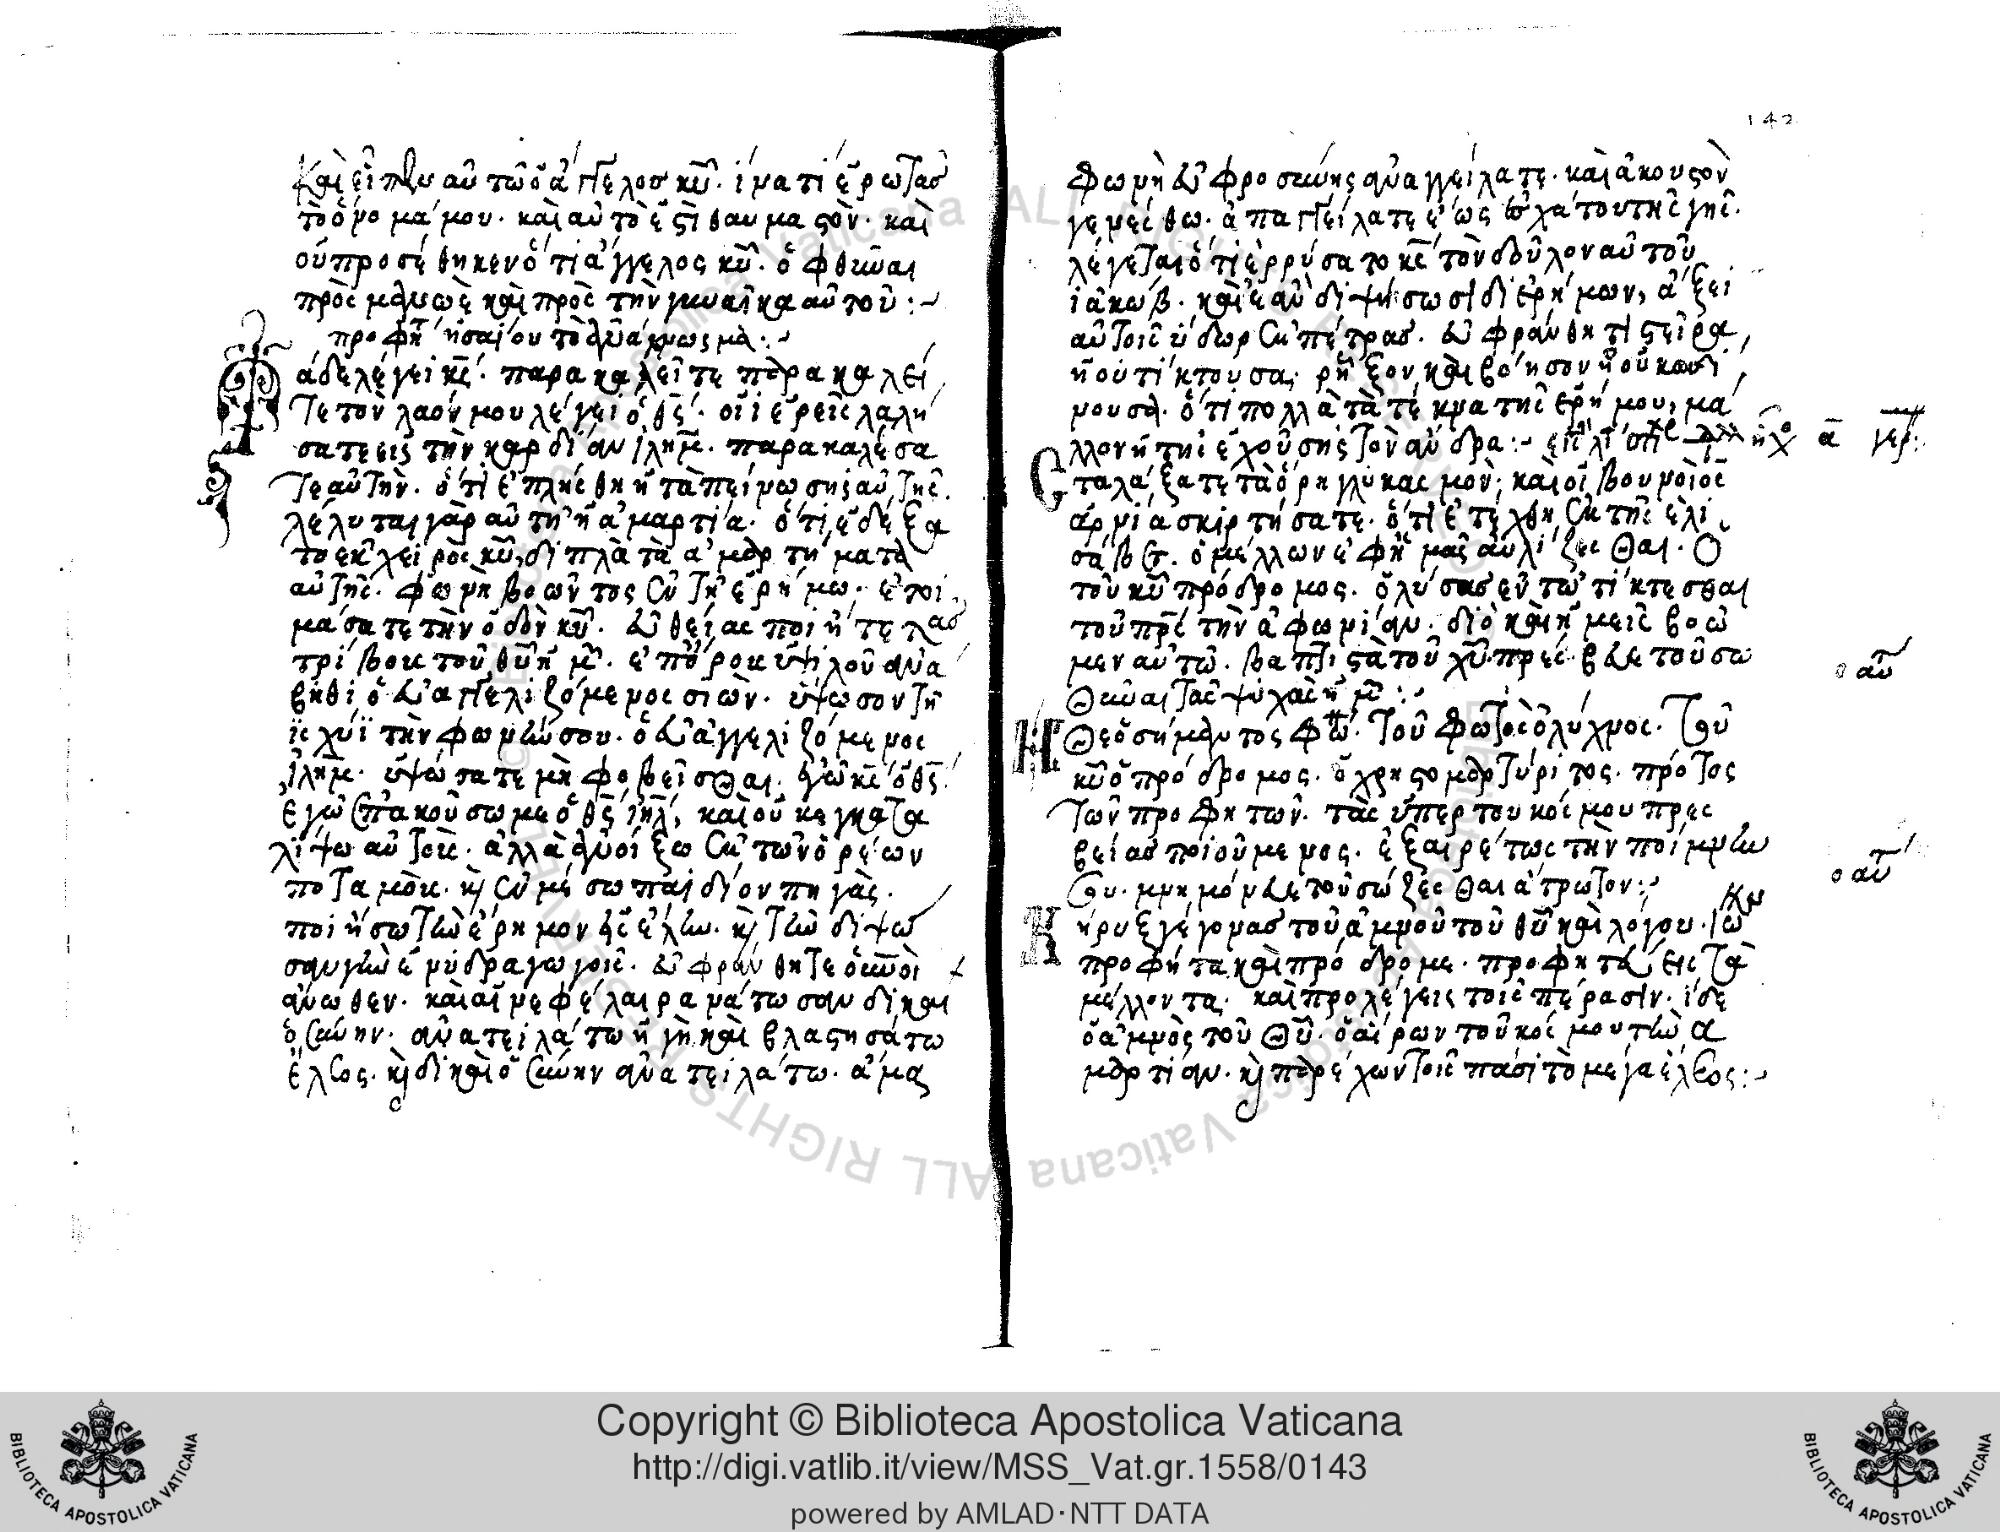 Καὶ εἶπεν αὐτῶ ὁ ἄγγελος κυ. ἱνατί ἐρωτᾶσ
τὸ ὄνομά μου. καὶ αὐτὸ ἐστὶ θαυμαστὸν. καὶ
οὐ προσέθηκεν ὅτι ἄγγελος κυ. ὀφθῆναι
πρὸς μανωὲ καὶ πρὸς τὴν γυναῖκα αὐτοῦ :~
προφητ ἡσαΐου τὸ ἀνάγνωσμα :~
άδε λέγει κς. παρακαλεῖτε παρακαλεῖ
τε τὸν λαόν μου λέγει ὁ θς. οἱ ἱερεῖς λαλή
σατε εἰς τὴν καρδίαν ιλημ. παρακαλέσα
τε αὐτὴν. ὅτι ἐπλήσθη ἡ ταπείνωσις αὐτῆς.
λέλυται γὰρ αὐτῆ ἡ ἁμαρτία. ὅτι ἐδέξα
το ἐκ χειρὸς κυ, διπλὰ τὰ ἁμαρτήματα
αὐτῆς. φωνὴ βοῶντος ἐν τῆ ἐρήμω. ἑτοι
μάσατε τὴν ὁδὸν κυ. εὐθείας ποιῆτε τὰσ
τρίβους τοῦ θυ ἡμ. ἐπ' ὄρους ὑψηλοῦ ἀνά
βηθι ὁ εὐαγγελιζόμενος σιών. ὕψωσον τῆ
ἰσχύϊ τὴν φωνήν σου. ὁ εὐαγγελιζόμενος
ιλημ. ὑψώσατε μὴ φοβεῖσθαι. ἐγὼ κς ὁ θς.
ἐγὼ ἐπακούσωμε ὁ θς ιηλ, καὶ οὐκ ἐγκατα
λίψω αὐτοὺς. ἀλλὰ ἀνοίξω ἐκ τῶν ὀρέων
ποταμοὺς. κὶ ἐν μέσω παιδίον πηγὰς.
ποιήσω τὴν ἔρημον εἰς ἕλην. κὶ τὴν διψῶ
σαν γῆν ἐν ὑδραγωγοῖς. εὐφρανθήτε ὁ οὐνὸς
ἄνωθεν. καὶ αἱ νεφέλαι ρανάτωσαν δικαι
οσύνην. ἀνατειλάτω ἡ γῆ καὶ βλαστησάτω
ἔλεος. κὶ δικαιοσύνην ἀνατειλάτω. ἅμα
142
Φωνὴ εὐφροσύνης ἀναγγείλατε. καὶ ἀκουστὸν
γενέσθω. ἀπαγγείλατε ἕως ἐσχάτου τῆς γῆς.
λέγεται ὅτι ἐρρύσατο κς τὸν δοῦλον αὐτοῦ
ἰακώβ. καὶ ἐὰν διψήσωσι δι ἐρήμων, ἄξει
αὐτοῖς ὕδωρ ἐκ πέτρας. εὐφράνθητι στεῖρα
ἡ οὐ τίκτουσα, ρῆξον καὶ βόησον ἡ οὐκ ὠδί
νουσα. ὅτι πολλὰ τὰ τέκνα τῆς ἐρήμου, μᾶ
λλον ἢ τῆς ἐχούσης τὸν ἄνδρα :~
Σταλάξατε τὰ ὄρη γλυκασμὸν, καὶ οἱ βουνοὶ ὡς
ἀρνία σκιρτήσατε. ὅτι ἐτέχθη ἐκ τῆς ἐλι
σάβετ. ὁ μέλλων ἐφ' ἡμᾶς αὐλίζεσθαι. Ὁ
τοῦ κυ πρόδρομος. ὁ λύσας ἐν τῶ τίκτεσθαι
τοῦ πρς τὴν ἀφωνίαν. διὸ καὶ ἡμεῖς βοῶ
μεν αὐτῶ. βαπτιστὰ τοῦ χυ πρέσβευε τοῦ σω
θῆναι τὰς ψυχὰς ἡμ :~
ὁ αὐτ
Ἡ
Θεοσήμαντος φω. τοῦ φωτὸς ὁ λύχνος. τοῦ
κυ ὁ πρόδρομος. ὁ χριστομαρτύριτος. πρότος
τῶν προφητῶν. τὰς ὑπὲρ του κόσμου πρες
βείας ποιούμενος. ἐξαιρέτως τὴν ποίμνην
σου. μνημόνευε τοῦ σώζεσθαι ἄτρωτον :~
ὁ αὐτ
Κήρυξ γέγονας τοῦ ἀμνοῦ τοῦ θυ καὶ λόγου. ἰω
προφῆτα καὶ πρόδρομε. προφητεύεις τὰ
μέλλοντα. καὶ προλέγεις τοῖς πέρασιν. ἴδε
ὁ ἀμνὸς τοῦ Θυ. ὁ αἴρων τοῦ κόσμου τὴν ἁ
μαρτίαν. κὶ παρέχων τοῖς πᾶσι τὸ μέγα ἔλεος :~
© Biblioteca Apostolica Vaticana ALL RIGHTS RESERVED
Copyright © Biblioteca Apostolica Vaticana
http://digi.vatlib.it/view/MSS_Vat.gr.1558/0143
powered by AMLAD·NTT DATA
BIBLIOTECA APOSTOLICA VATICANA
BIBLIOTECA APOSTOLICA VATICANA